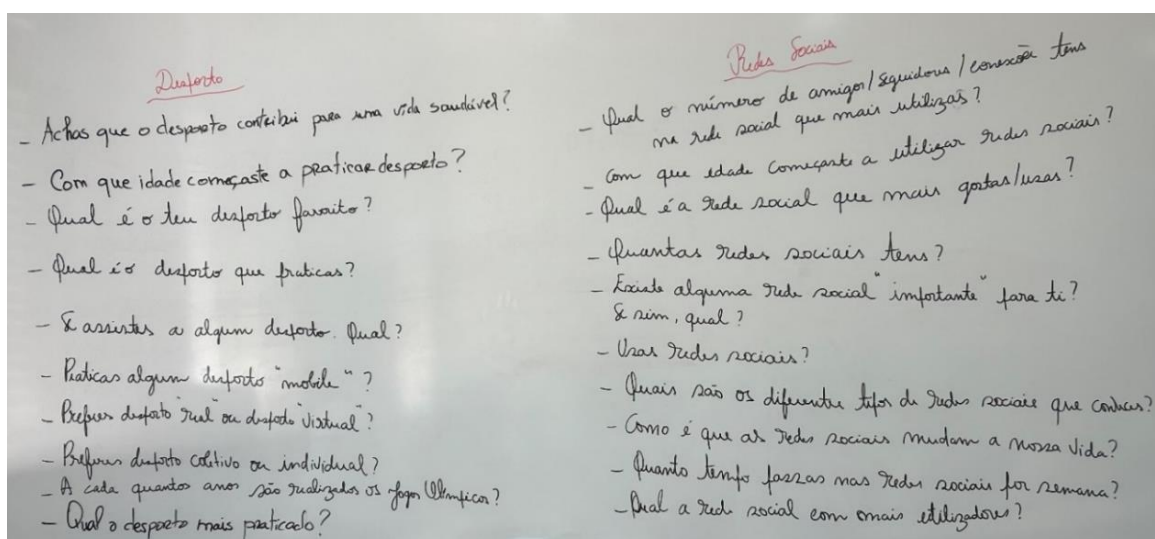 Desporto
- Achas que o desporto contribui para uma vida saudável?
- Com que idade começaste a praticar desporto?
- Qual é o teu desporto favorito?
- Qual é o desporto que praticas?
- Se assistes a algum desporto. Qual?
- Praticas algum desporto "mobile"?
- Preferes desporto "real" ou desporto "virtual"?
- Preferes desporto coletivo ou individual?
- A cada quantos anos são realizados os Jogos Olímpicos?
- Qual o desporto mais praticado?
Redes Sociais
- Qual o número de amigos/seguidores/conexões tens
na rede social que mais utilizas?
- Com que idade começaste a utilizar redes sociais?
- Qual é a rede social que mais gostas/usas?
- Quantas redes sociais tens?
- Existe alguma rede social "importante" para ti?
Se sim, qual?
- Usas redes sociais?
- Quais são os diferentes tipos de redes sociais que conheces?
- Como é que as redes sociais mudam a nossa vida?
- Quanto tempo passas nas redes sociais por semana?
- Qual a rede social com mais utilizadores?